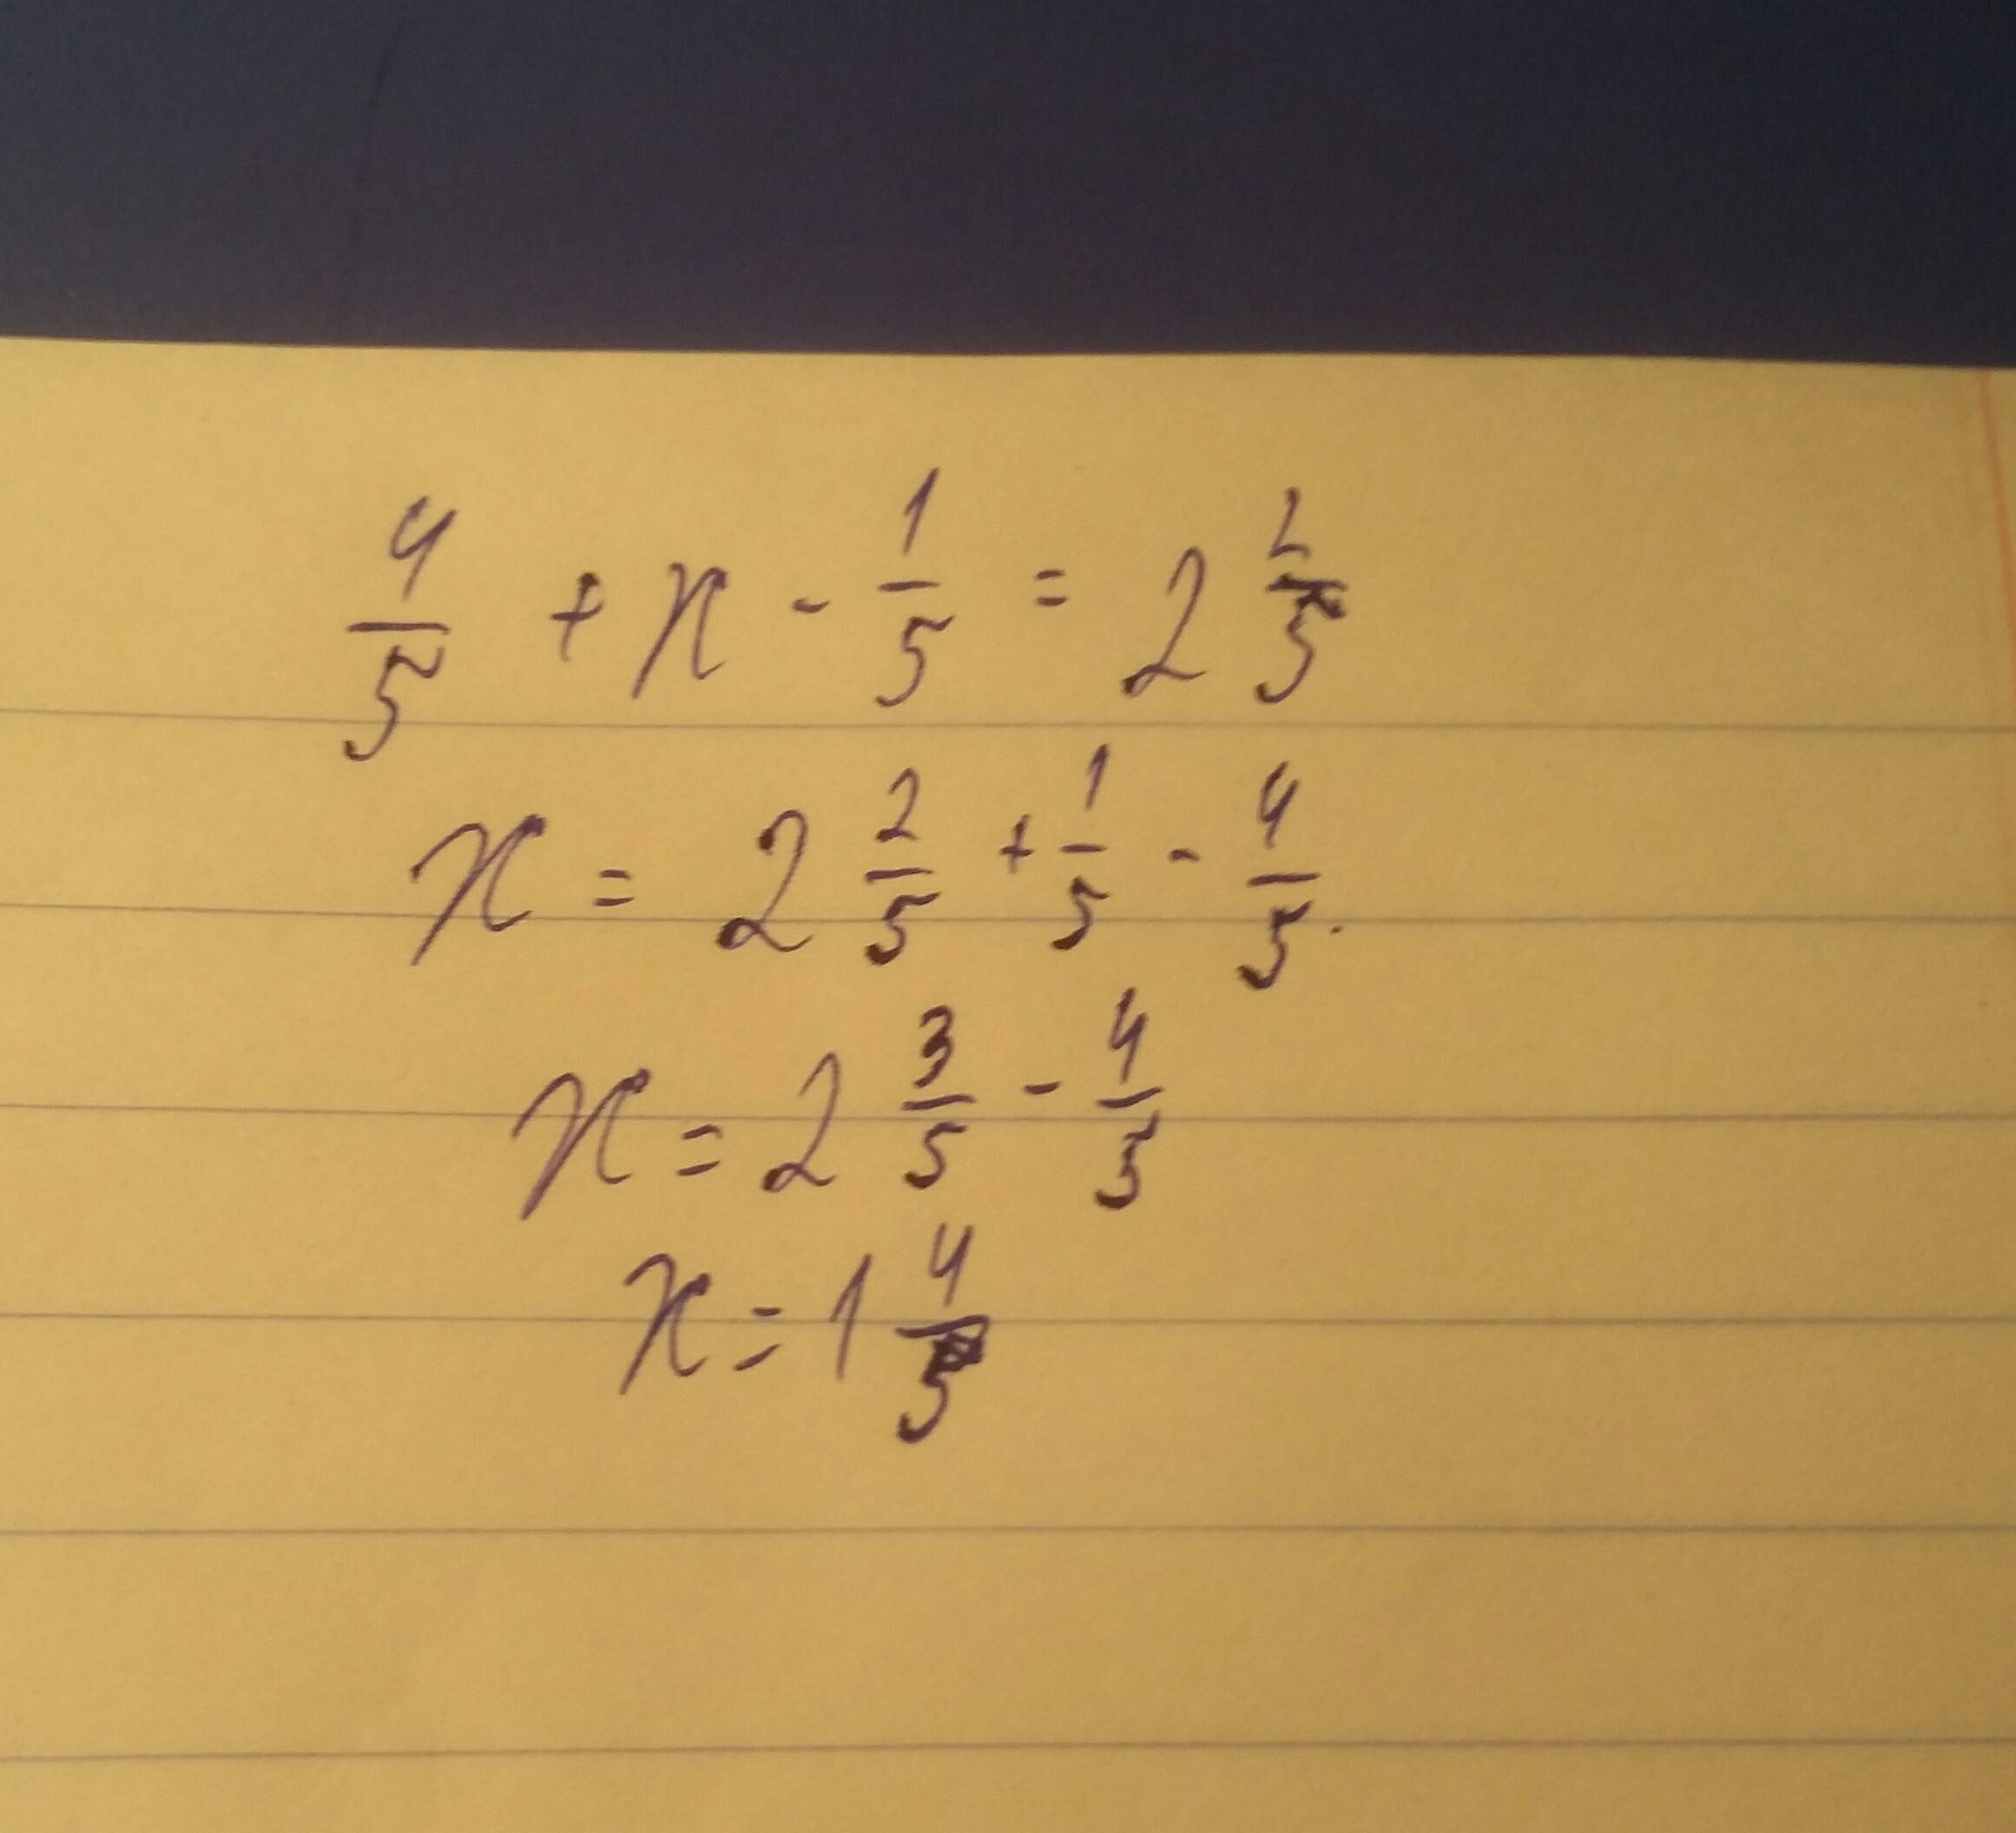 4/5 + x - 1/5 = 2 2/5
x = 2 2/5 + 1/5 - 4/5.
x = 2 3/5 - 4/5
x = 1 4/5